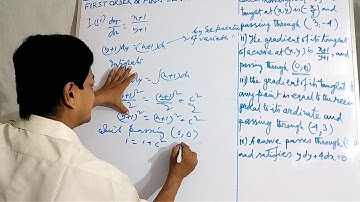 FIRST ORDER & FIRST
I (ii) dy/dx = x+1/y+1
(y+1)dy = (x+1)dx
by Se
of variable
Integrate
dy = ∫(x+1)dx
(x+1)²/2 + c²
(y+1)² = (x+1)² + c²
passing (0,0)
1 = 1 + c²
tangent at (x,y) is
passing through (3,-4)
II) The gradient of its tangent
of a curve at (x,y) is x+1/y+1, and
passing through (0,0)
III) the gradient of its tangent
any point is equal to the reci-
procal to its ordinate and
passing through (4,3)
IV) A curve passes through
and satisfies y dy + 4dx = 0